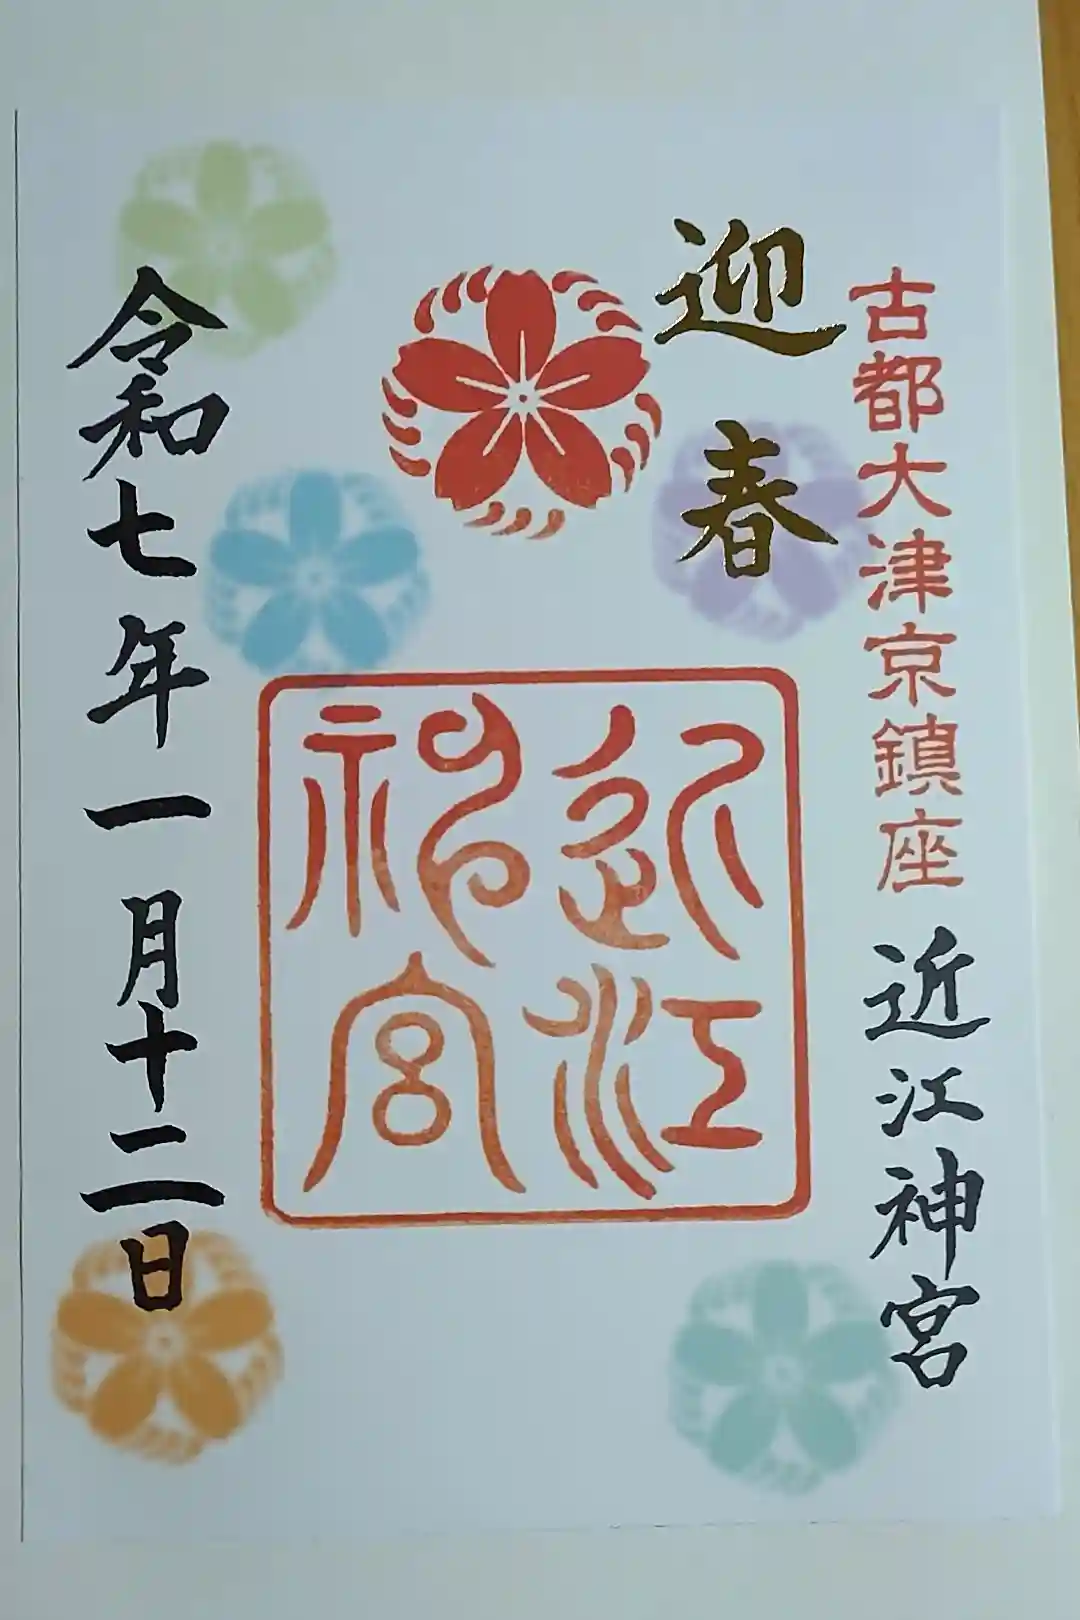 古都大津京鎮座
近江神宮
迎春
近江
神宮
令和七年一月十二日